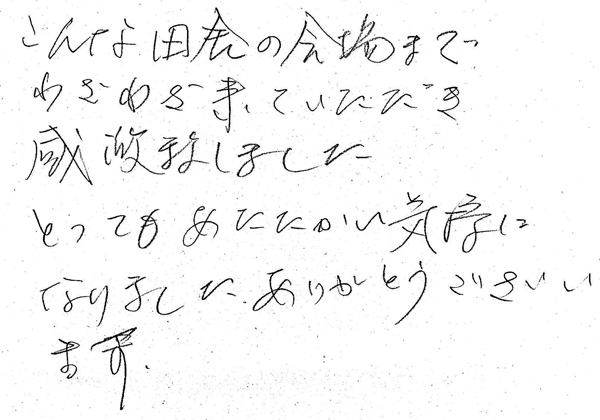 こんな田舎の会場まで
わざわざ来ていただき
感激致しました
とってもあたたかい気持に
なりました.ありがとうござい
ます.